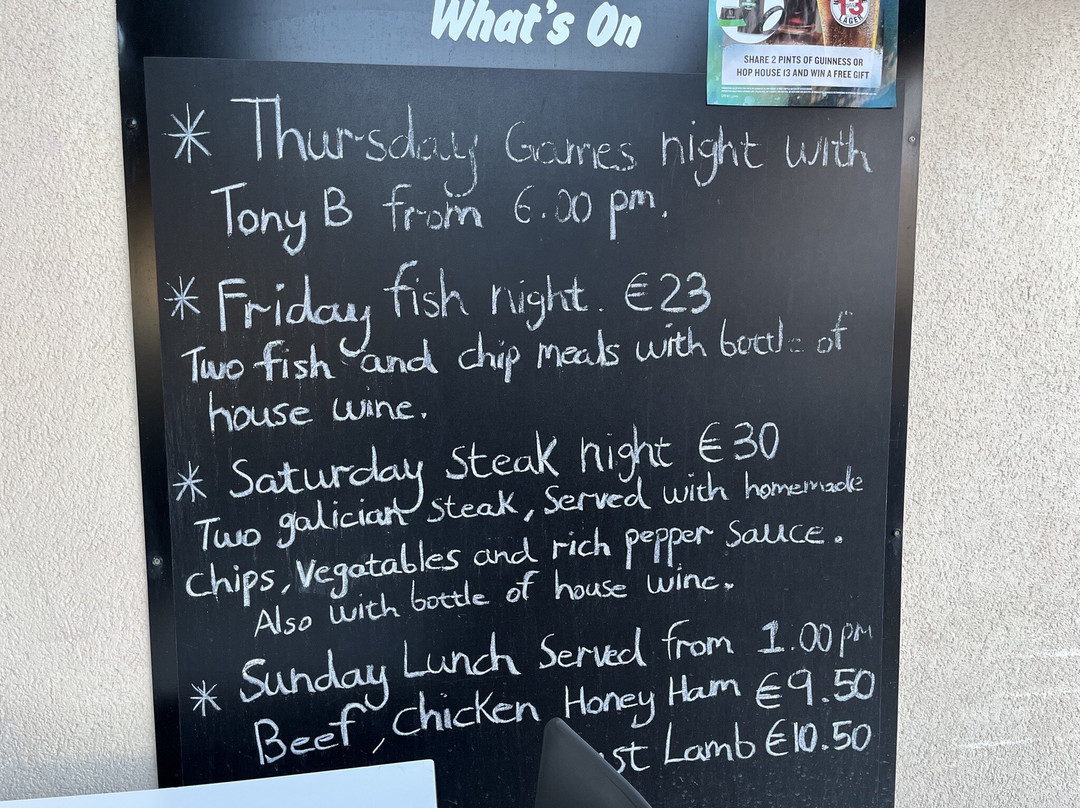 What's On
13
LAGER
SHARE 2 PINTS OF GUINNESS OR
HOP HOUSE 13 AND WIN A FREE GIFT
* Thursday Games night with
Tony B from 6.00 pm.
* Friday fish night. €23
Two fish and chip meals with bottle of
house wine.
* Saturday Steak night €30
Two galician steak, Served with homemade
Chips, Vegatables and rich pepper sauce.
Also with bottle of house wine.
* Sunday Lunch Served from 1.00pm
Beef, Chicken Honey Ham €9.50
Lamb €10.50